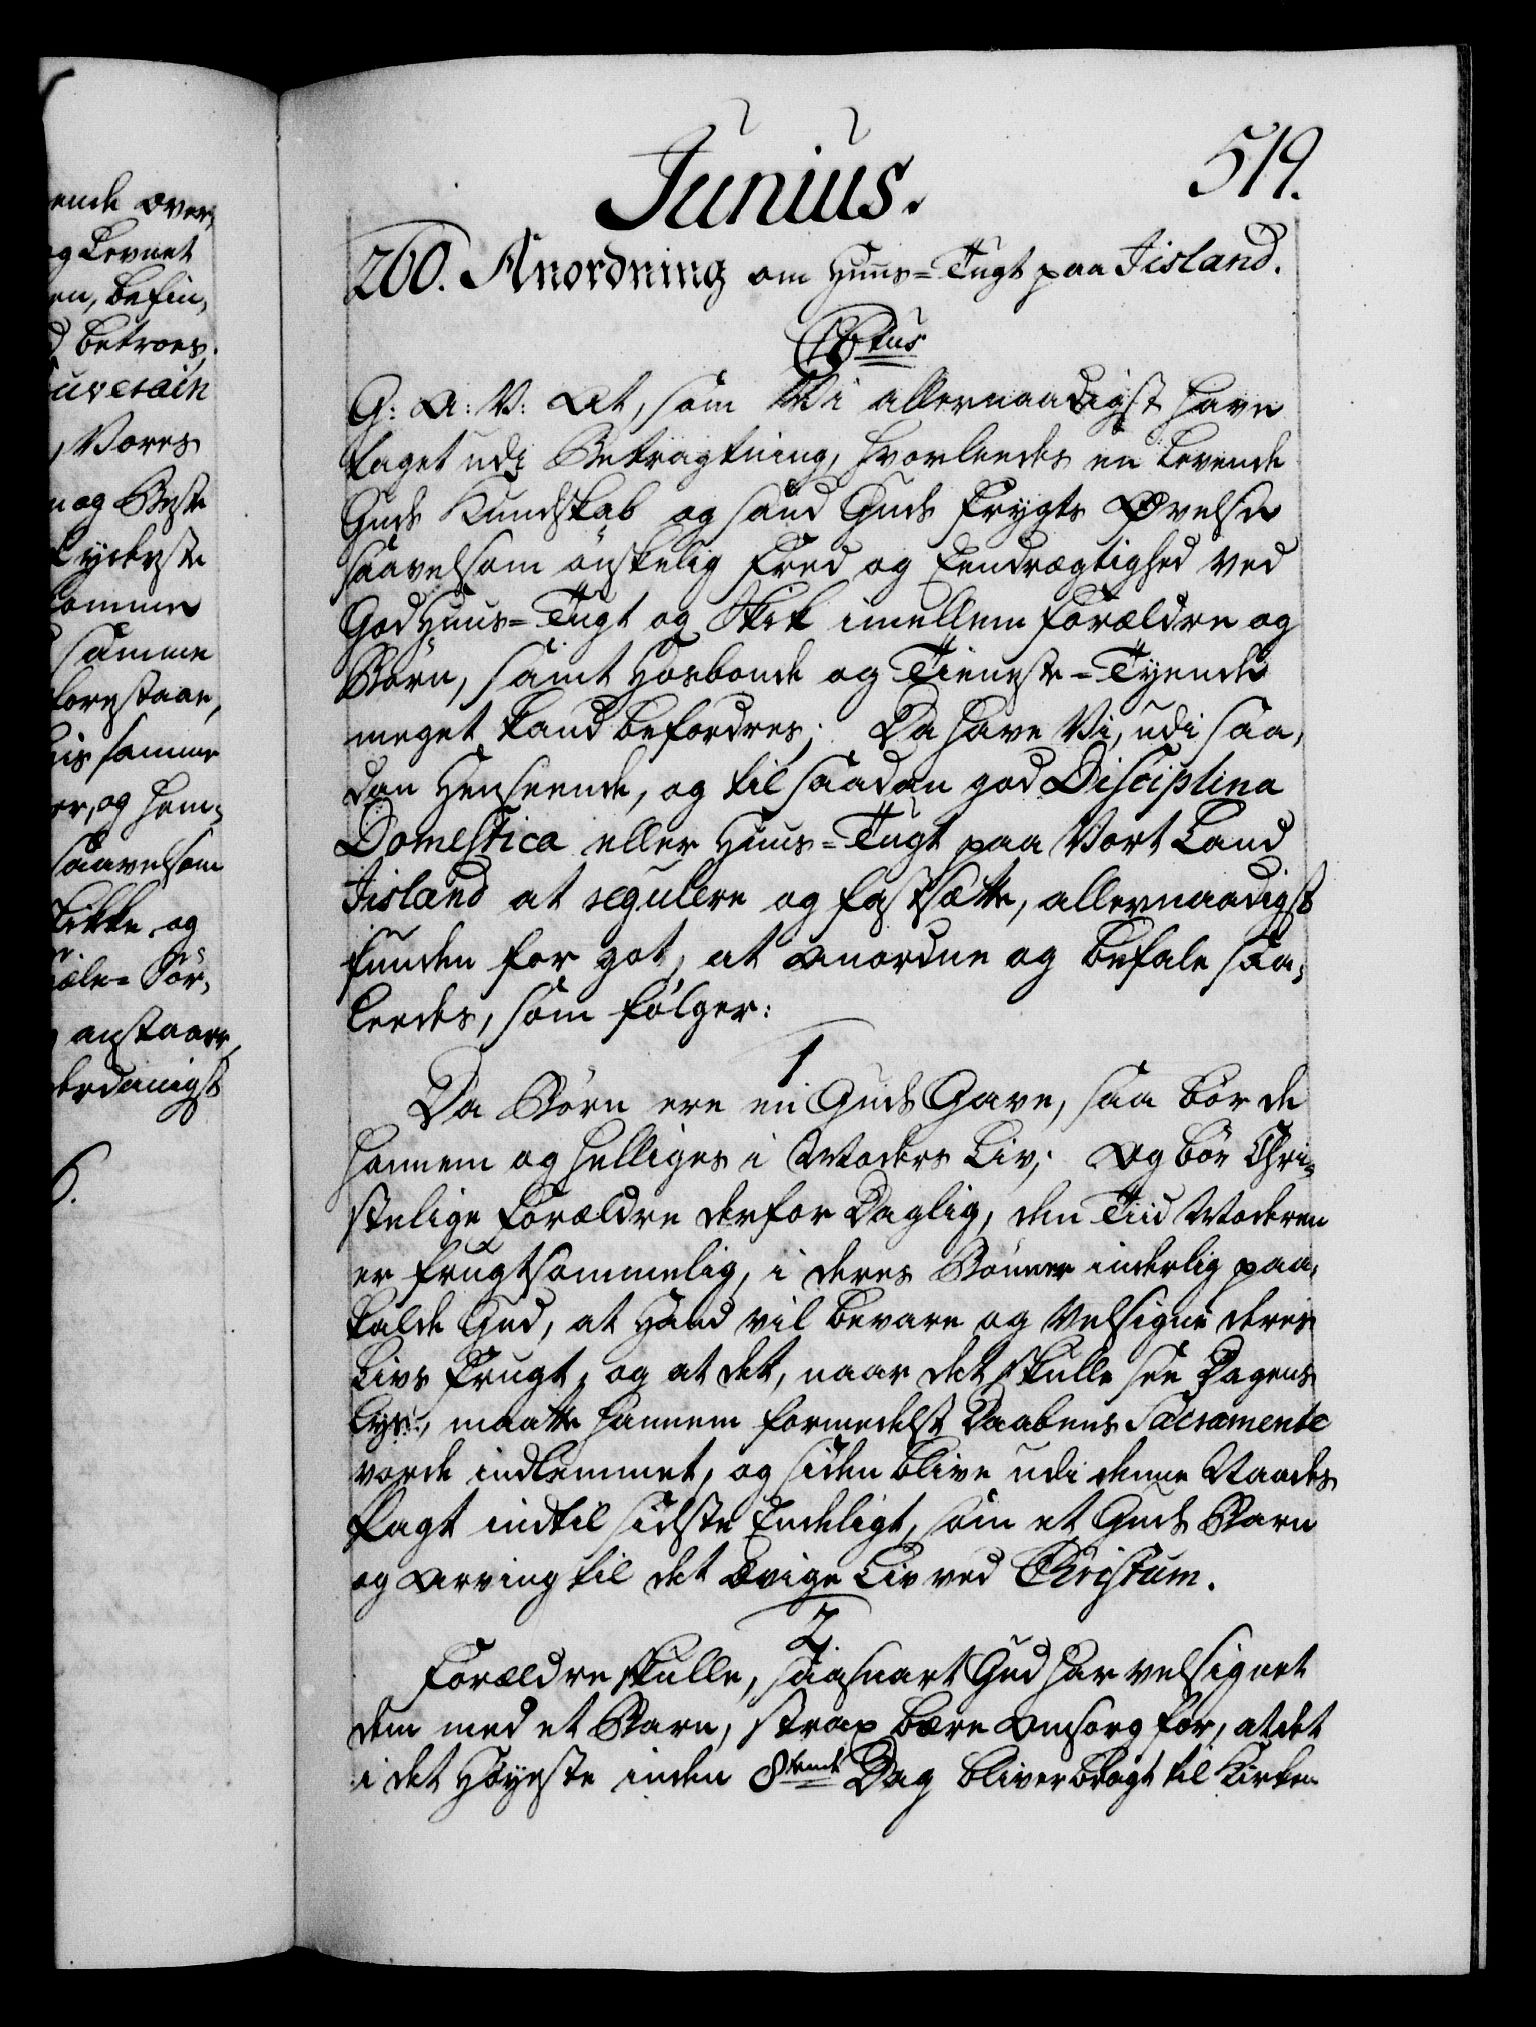 ende over,
og Levnet
en, befin,
d betroes,
uverain
, Vores
n og Beste
Lyckeste
komme
samme
forestaae,
his samme
er, og hem,
saavelsom
likke og
iæle= Sör,
anstaaer,
erdanigst
6.
Junius.
519.
260. Anordning om Huus=Tugt paa Jisland.
G: A: V: At, som Vi allernaadigst have
taget udi Betragtning, hvorleedes en levende
Guds Kundskab og sand Guds Frygts Øvelse
saavelsom önskelig Fred og Eendrægtighed ved
God Huus=Tugt og Skik imellem Forældre og
Börn, samt Hosbonde og Tieneste=Tyende
meget kand befordres; Da have Vi, udi saa,
dan Henseende, og til saadan god Disciplina
Domestica eller Huus=Tugt paa Vort Land
Jisland at regulere og fastsætte, allernaadigst
funden for got, at anordne og befale saa,
leedes, som fölger:
1
Da Börn ere en Guds Gave, saa bör de
hannem og helliges i Moders Liv; Og bör Chri=
stelige Forældre derfor Daglig, den Tiid Moderen
er frugtsommelig, i deres Bönner inderlig paa,
kalde Gud, at Hand vil bevare og velsigne deres
Livs Frugt, og at det, naar det skulle see Dagens
Lys, maatte hannem formedelst Daabens Sacramente
vorde indlemmet, og siden blive udi denne Naades
Pagt indtil sidste Endeligt, som et Guds Barn
og Arving til det ævige Liv ved Christum.
2.
Forældre skulle, saasnart Gud har velsignet
dem med et Barn, strax bære Omsorg for, at det
i det Höyeste inden 8tende Dag bliver bragt til Kirken